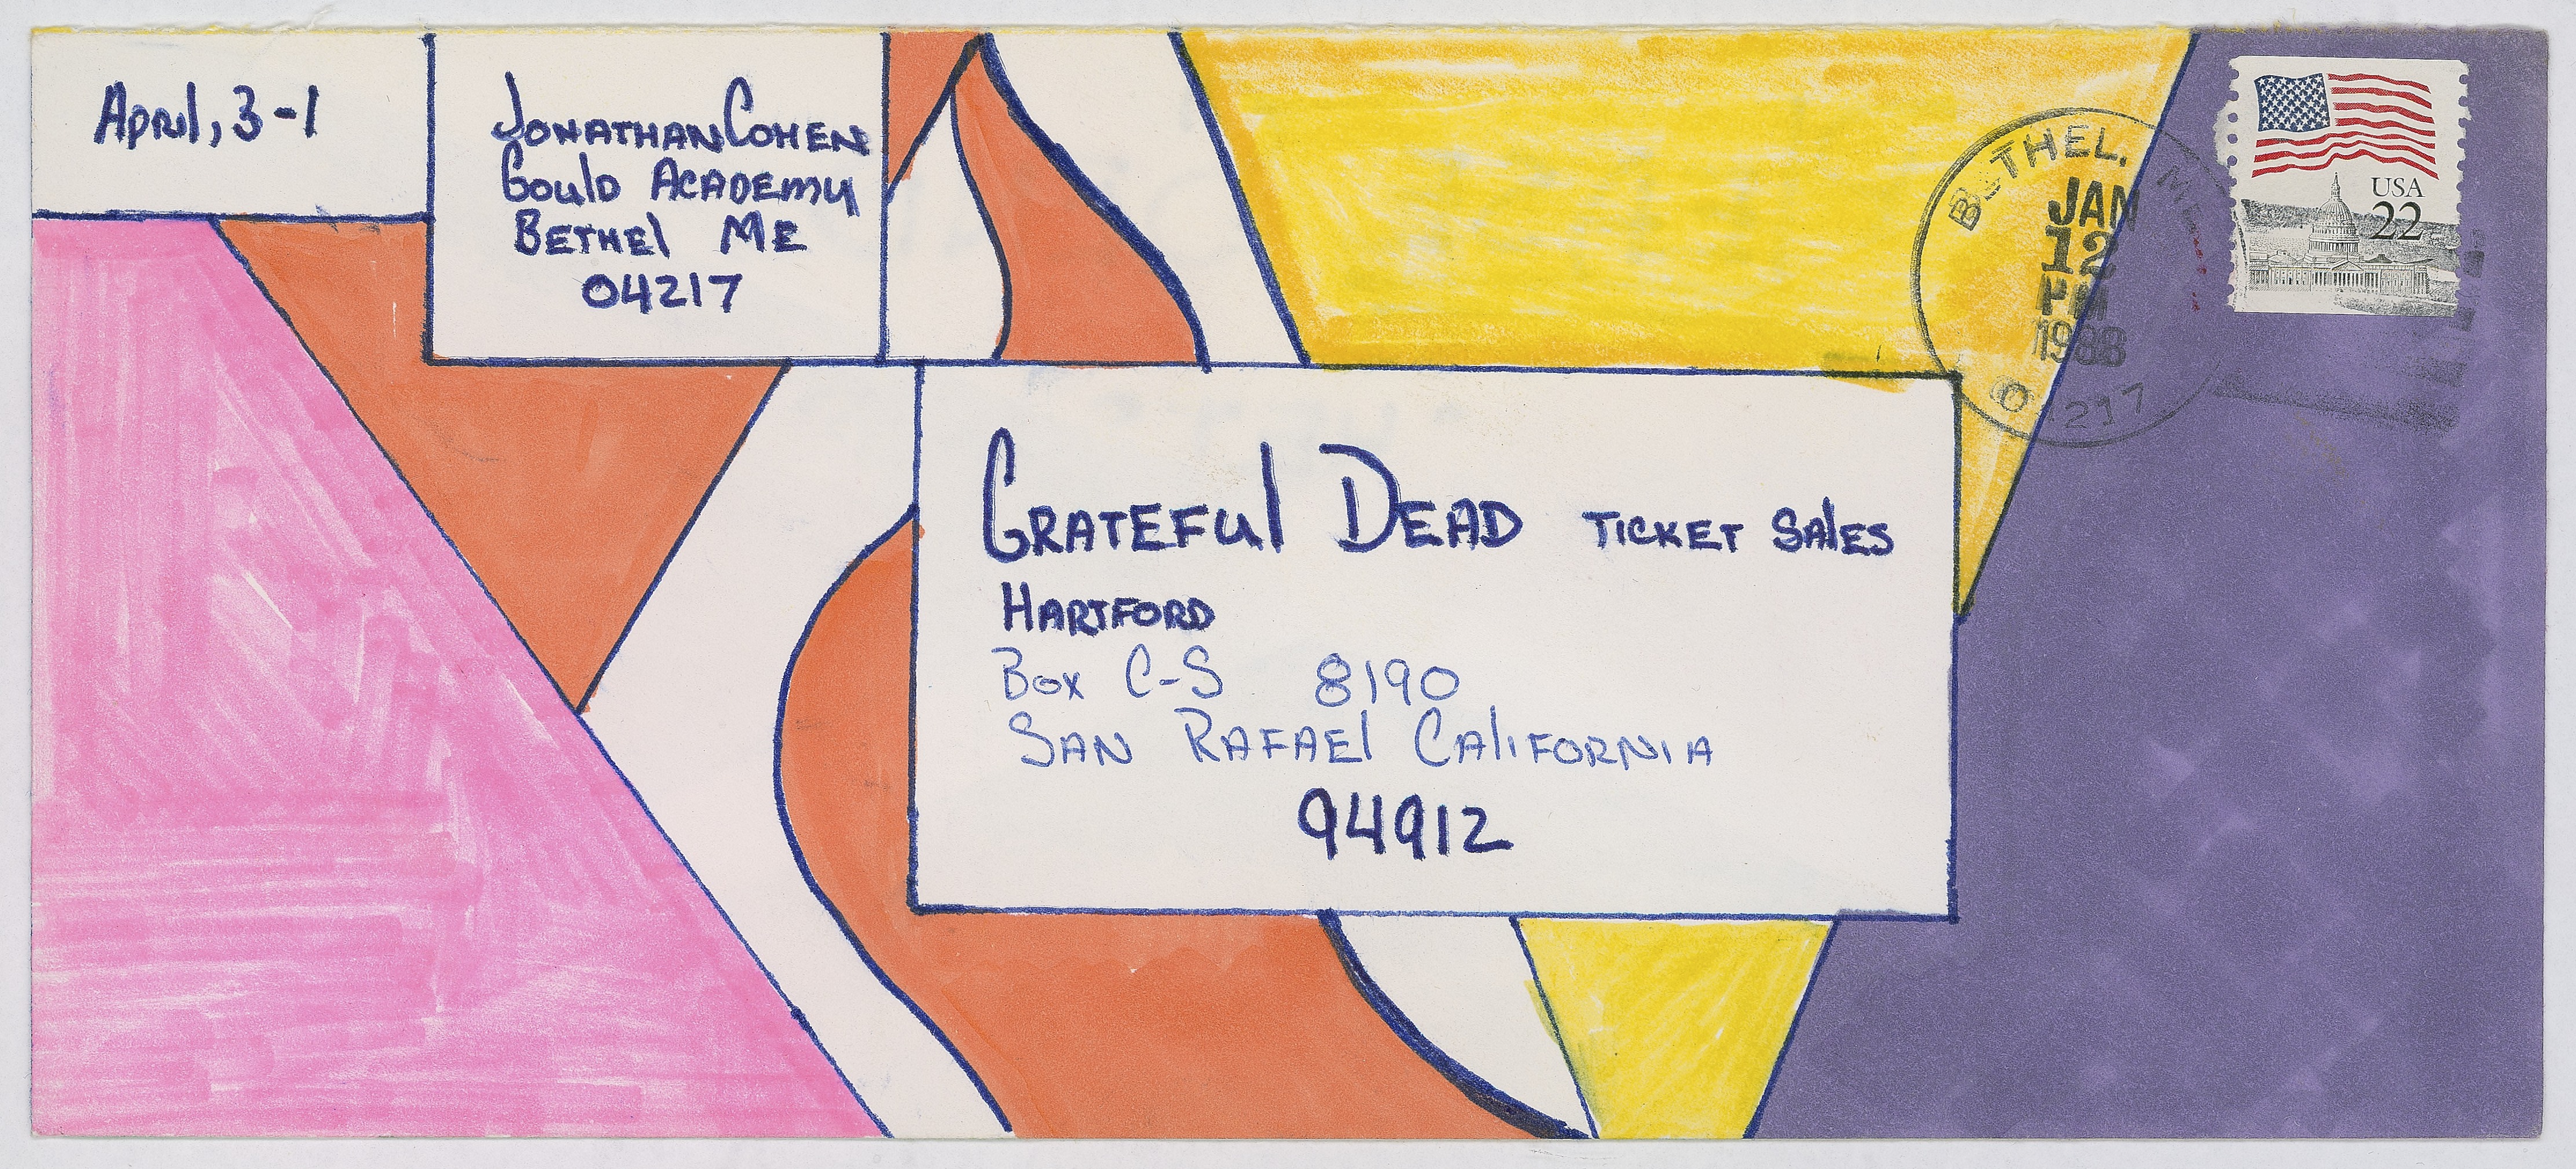 April, 3-1
Jonathan Cohen
Gould Academy
Bethel ME
04217
BETHEL, ME
JAN
12
PM
1988
0 217
USA
22
Grateful Dead Ticket Sales
Hartford
Box C-S 8190
San Rafael California
94912